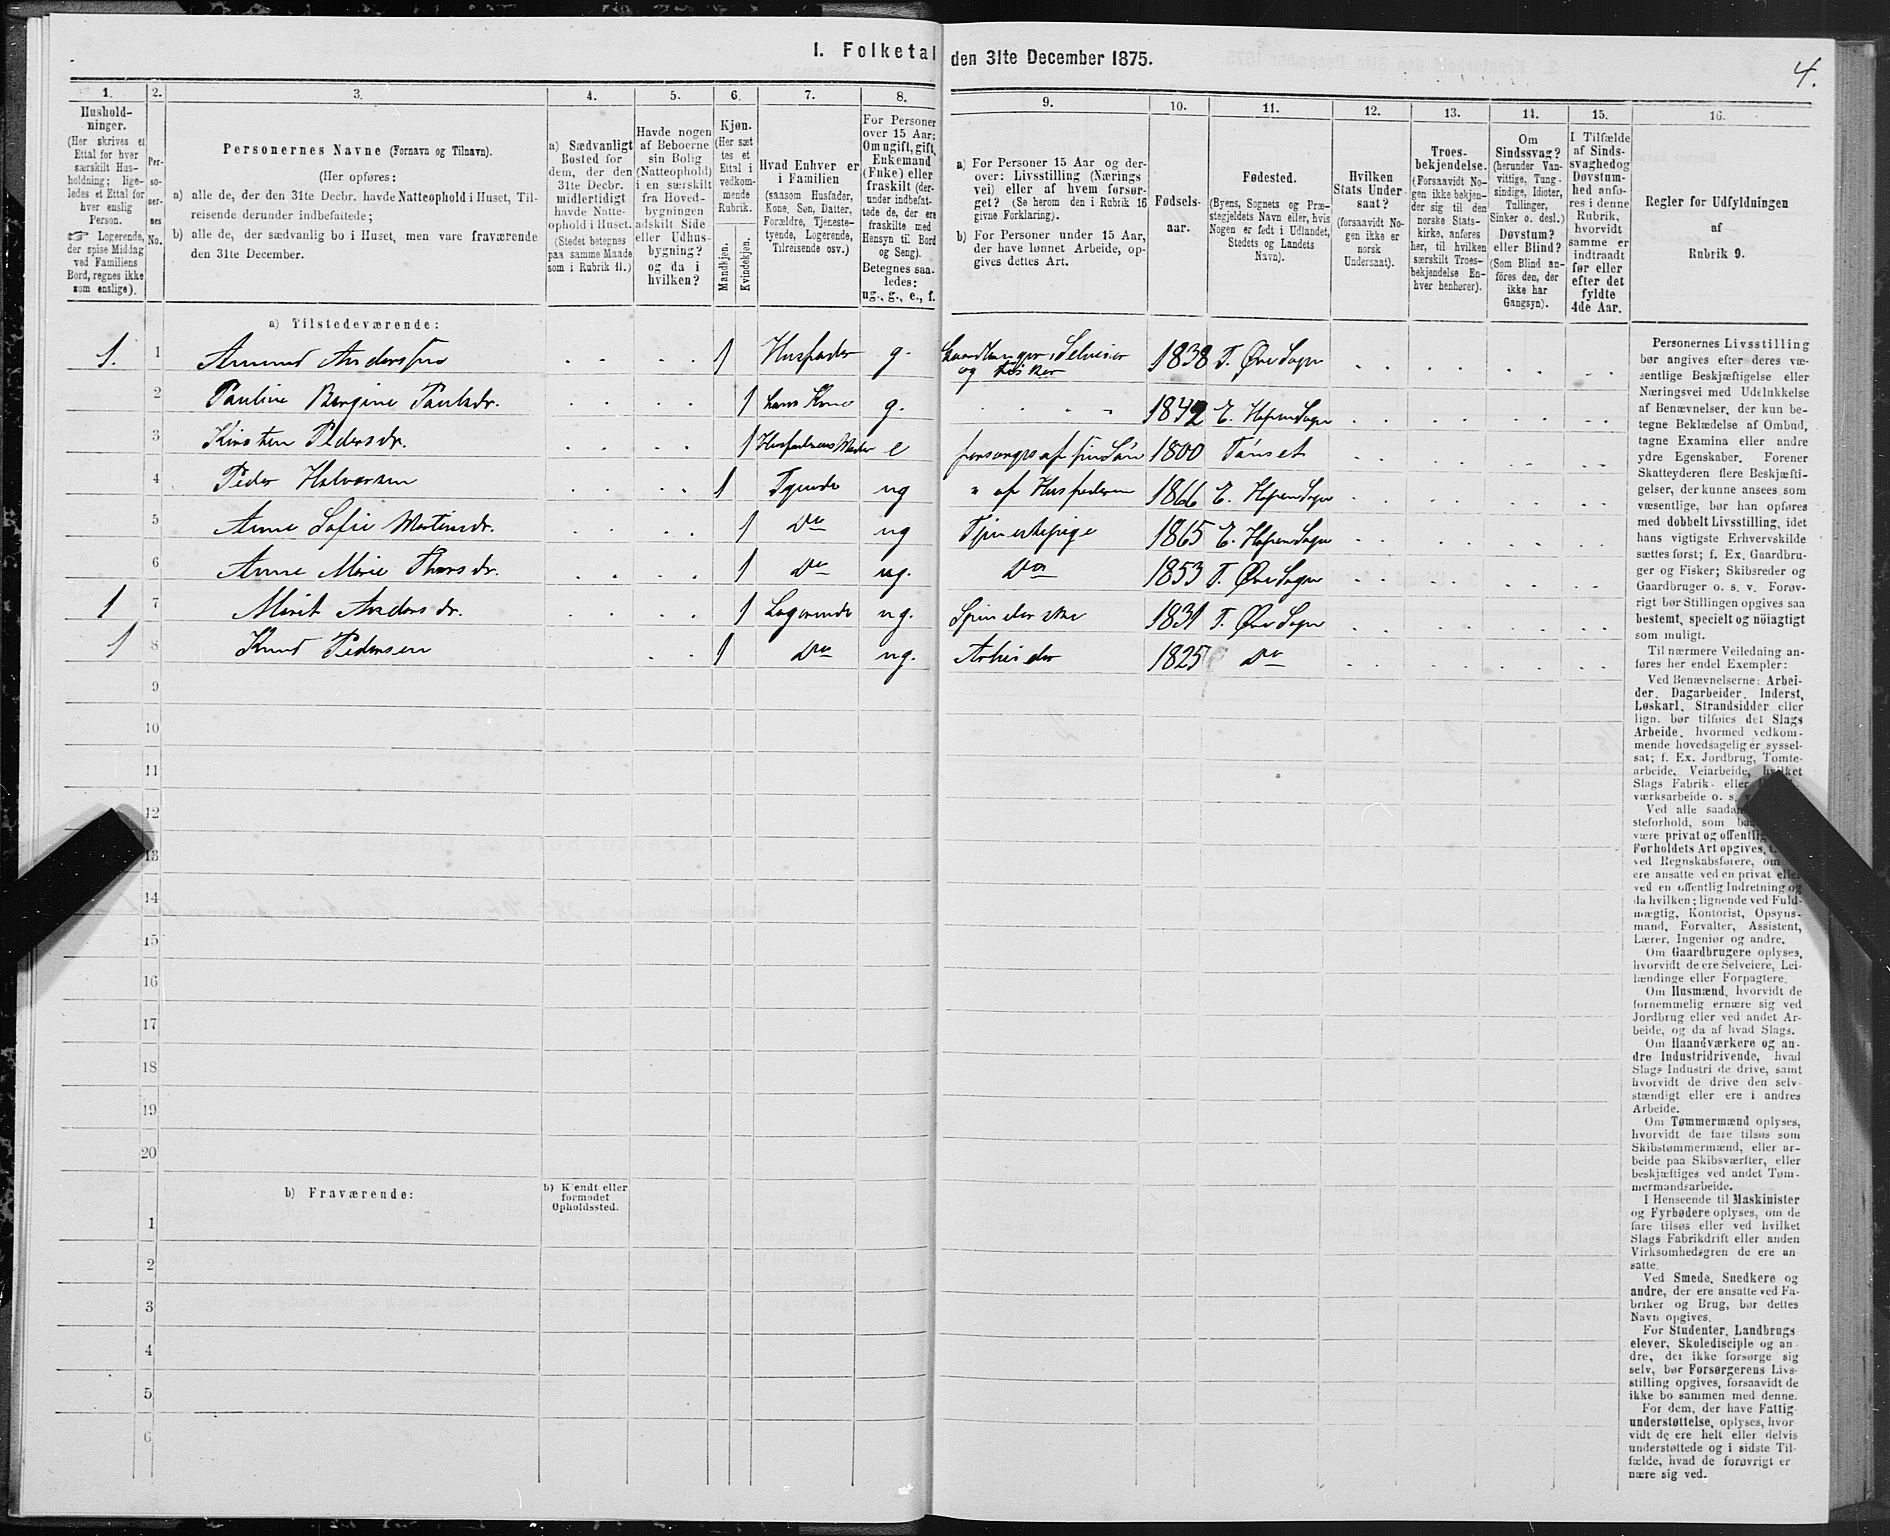 I. Folketal den 31te December 1875.
4.
1. 2. 3. 4. 5. 6. 7. 8. 9. 10. 11. 12. 13. 14. 15. 16.
Hushold-
ninger.
(Her skrives et
Ettal for hver
særskilt Hus-
holdning; lige-
ledes et Ettal for
hver enslig
Person.
☞ Logerende,
der spise Middag
ved Familiens
Bord, regnes ikke
som enslige).
Per-
so-
ner-
nes
No.
Personernes Navne (Fornavn og Tilnavn).
(Her opføres:
a) alle de, der den 31te Decbr. havde Natteophold i Huset, Til-
reisende derunder indbefattede;
b) alle de, der sædvanlig bo i Huset, men vare fraværende
den 31te December.
a) Sædvanligt
Bosted for
dem, der den
31te Decbr.
midlertidigt
havde Natte-
ophold i Huset.
(Stedet betegnes
paa samme Maade
som i Rubrik 11.)
Havde nogen
af Beboerne
sin Bolig
(Natteophold)
i en særskilt
fra Hoved-
bygningen
adskilt Side-
eller Udhus-
bygning?
og da i
hvilken?
Kjøn.
(Her sæt-
tes et
Ettal i
vedkom-
mende
Rubrik.
Mandkjøn.
Kvindekjøn.
Hvad Enhver er
i Familien
(saasom Husfader,
Kone, Søn, Datter,
Forældre, Tjeneste-
tyende, Logerende,
Tilreisende osv.)
For Personer
over 15 Aar:
Om ugift, gift,
Enkemand
(Enke) eller
fraskilt (der-
under indbefat-
tede de, der ere
fraskilte med
Hensyn til Bord
og Seng).
Betegnes saa-
ledes:
ug., g., e., f.
a) For Personer 15 Aar og der-
over: Livsstilling (Nærings-
vei) eller af hvem forsør-
get? (Se herom den i Rubrik 16
givne Forklaring).
b) For Personer under 15 Aar,
der have lønnet Arbeide, op-
gives dettes Art.
Fødsels-
aar.
Fødested.
(Byens, Sognets og Præ-
stegjeldets Navn eller, hvis
Nogen er født i Udlandet,
Stedets og Landets
Navn).
Hvilken
Stats Under-
saat?
(forsaavidt No-
gen ikke er
norsk
Undersaat).
Troes-
bekjendelse.
(Forsaavidt No-
gen ikke bekjen-
der sig til den
norske Stats-
kirke, anføres
her, til hvilken
særskilt Troes-
bekjendelse En-
hver henhører).
Om
Sindssvag?
(herunder Van-
vittige, Tung-
sindige, Idioter,
Tullinger,
Sinker o. desl.)
Døvstum?
eller Blind?
(Som Blind an-
føres den, der
ikke har
Gangsyn).
I Tilfælde
af Sinds-
svaghed og
Døvstum-
hed anfø-
res i denne
Rubrik,
hvorvidt
samme er
indtraadt
før eller
efter det
fyldte
4de Aar.
Regler for Udfyldningen
af
Rubrik 9.
a) Tilstedeværende:
1. 1 Amund Anderssen 1 Husfader g. Gaardbruger, Selveier og Fisker 1838 T. Øre Sogn
2 Pauline Bergine Paulsdr. 1 hans Kone g. 1842 E. Hopen Sogn
3 Kirsten Pedersdr. 1 Husfaderens Moder e forsørges af sin Søn 1800 Tønset
4 Peder Halvorsen 1 Tyende ug " af Husfaderen 1866 E. Hopen Sogn
5 Anne Sofie Mortensdr. 1 Do ug Tjenestepige 1865 E. Hopen Sogn
6 Anne Marie Thorsdr. 1 Do ug. Do 1853 T. Øre Sogn
1 7 Marit Andersdr. 1 Logerende ug. Spinderske 1831 T. Øre Sogn
1 8 Knud Pedersen 1 Do ug. Arbeider 1825 Do
9
10
11
12
13
14
15
16
17
18
19
20
b) Fraværende:
b) Kjendt eller
formodet
Opholdssted.
1
2
3
4
5
6
Personernes Livsstilling
bør angives efter deres væ-
sentlige Beskjæftigelse eller
Næringsvei med Udelukkelse
af Benævnelser, der kun be-
tegne Beklædelse af Ombud,
tagne Examina eller andre
ydre Egenskaber. Forener
Skatteyderen flere Beskjæfti-
gelser, der kunne ansees som
væsentlige, bør han opføres
med dobbelt Livsstilling, idet
hans vigtigste Erhvervskilde
sættes først; f. Ex. Gaardbru-
ger og Fisker; Skibsreder og
Gaardbruger o. s. v. Forøv-
rigt bør Stillingen opgives saa
bestemt, specielt og nøiagtigt
som muligt.
Til nærmere Veiledning an-
føres her endel Exempler:
Ved Benævnelserne: Arbei-
der, Dagarbeider, Inderst,
Løskarl, Strandsidder eller
lign. bør tilføies det Slags
Arbeide, hvormed vedkom-
mende hovedsagelig er syssel-
sat; f. Ex. Jordbrug, Tomte-
arbeide, Veiarbeide, hvilket
Slags Fabrik- eller
værksarbeide o. s. v.
Ved alle saadan
steforhold, som
være privat og offentlig
Forholdets Art opgives,
ved Regnskabsførere, om
ere ansatte ved en privat eller
ved en offentlig Indretning og
da hvilken; lignende ved Fuld-
mægtig, Kontorist, Opsyns-
mand, Forvalter, Assistent,
Lærer, Ingeniør og andre.
Om Gaardbrugere oplyses,
hvorvidt de ere Selveiere, Lei-
lændinge eller Forpagtere.
Om Husmænd, hvorvidt de
fornemmelig ernære sig ved
Jordbrug eller ved andet Ar-
beide, og da af hvad Slags.
Om Haandværkere og an-
dre Industridrivende, hvad
Slags Industri de drive, samt
hvorvidt de drive den selv-
stændigt eller ere i andres
Arbeide.
Om Tømmermænd oplyses,
hvorvidt de fare tilsøs som
Skibstømmermænd, eller ar-
beide paa Skibsværfter, eller
beskjæftiges ved andet Tøm-
mermandsarbeide.
I Henseende til Maskinister
og Fyrbødere oplyses, om de
fare tilsøs eller ved hvilket
Slags Fabrikdrift eller anden
Virksomhedsgren de ere an-
satte.
Ved Smede, Snedkere og
andre, der ere ansatte ved Fa-
briker og Brug, bør dettes
Navn opgives.
For Studenter, Landbrugs
elever, Skoledisciple og an-
dre, der ikke forsørge sig
selv, bør Forsørgerens Livs-
stilling opgives, forsaavidt de
ikke bo sammen med denne.
For dem, der have Fattig-
understøttelse, oplyses, hvor-
vidt de ere helt eller delvis
understøttede og i sidste Til-
fælde, hvad de forøvrigt er
nære sig ved.